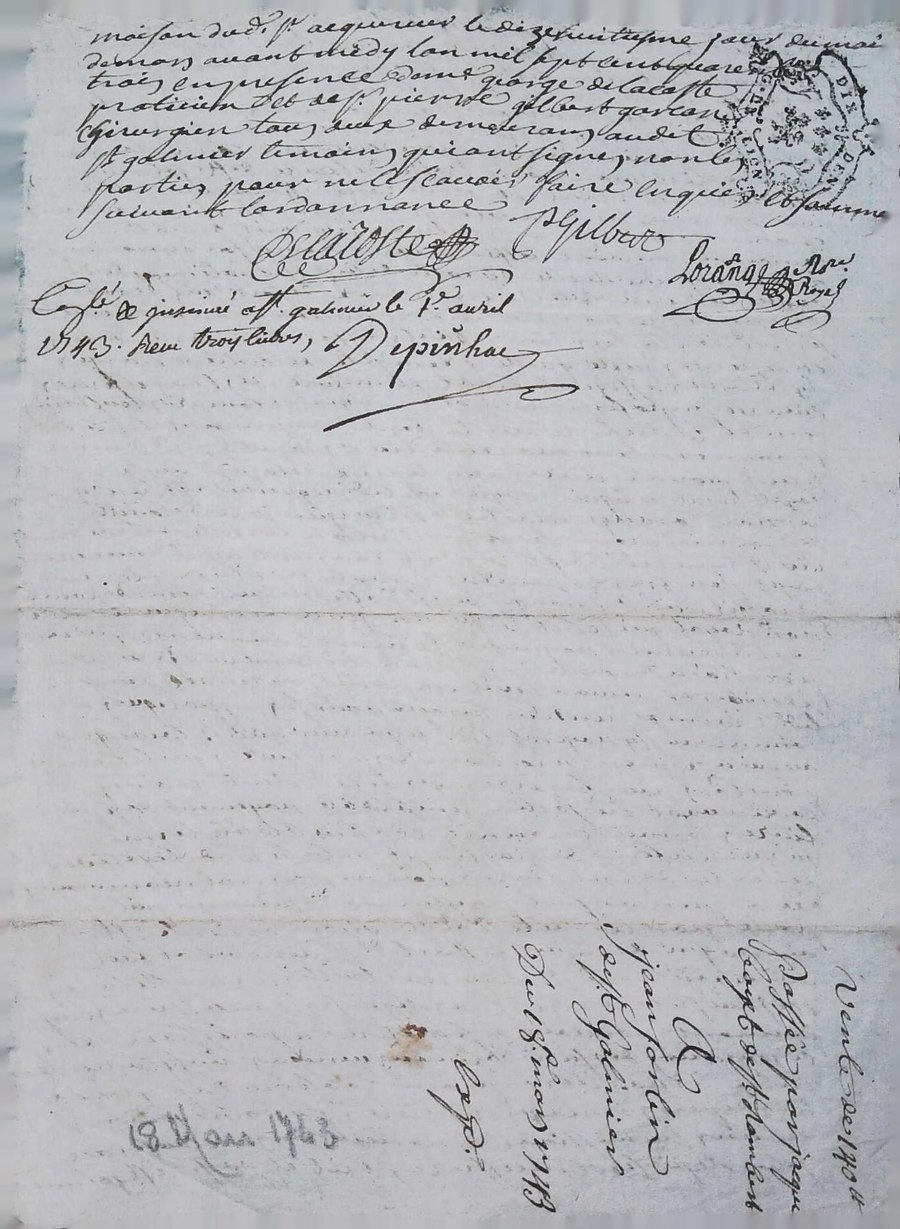 maison dud. sr. acquereur le dizehuitiesme jour du moi
de mars avant midy lan mil sept cent quare
trois en presence dame george de lacoste
praticien et de sr. pierre gilbert garson
chirurgien tous deux demeurans audit
st galmier temoins qui ont signes non les
parties pour ne le scavoir faire enquis et somme
suivant lordonnance
Delacoste P Gilbert
Lorange Nre. Royal
et insinué a st. galmier le 1r. avril
1743. Receu trois livres, Depinhac
GEN. DE LION
Vente de 140 ll
Passée par jaque
de st Rambert
A
jean forlin
de st. Galmier
Du 18e. mars 1743
Exp.
18 Mars 1743